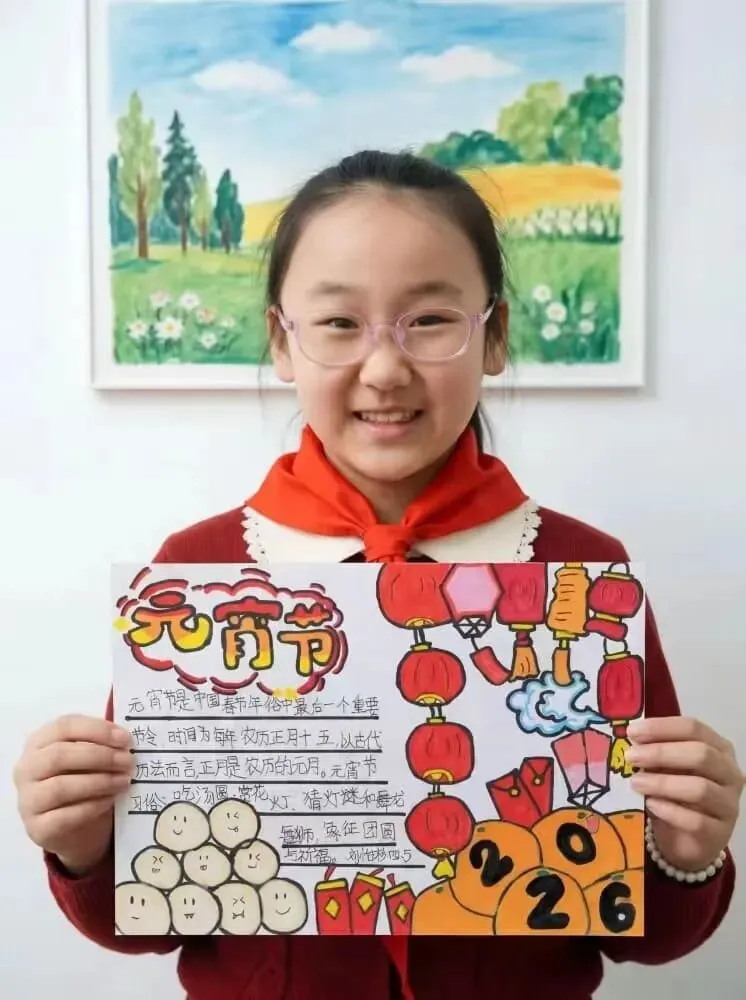 元宵节
元宵节是中国春节年俗中最后一个重要
节令 时间为每年农历正月十五,以古代
历法而言,正月是农历的元月。元宵节
习俗:吃汤圆、赏花灯、猜灯谜和舞龙
舞狮,象征团圆
与祈福。
2026